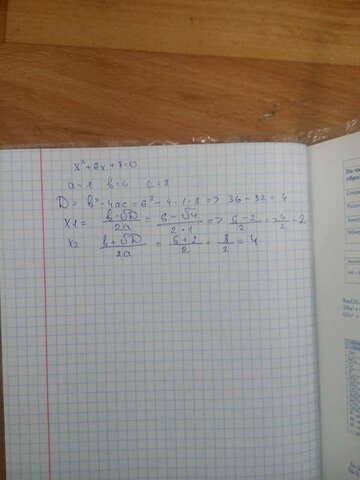 x²+6x+8=0
a=1 b=6 c=8
D= b²-4ac = 6²-4·1·8 => 36-32=4
x1= b-√D/2a = 6-√4/2·1 => 6-2/2 = 4/2 = 2
x2 b+√D/2a = 6+2/2 = 8/2 = 4